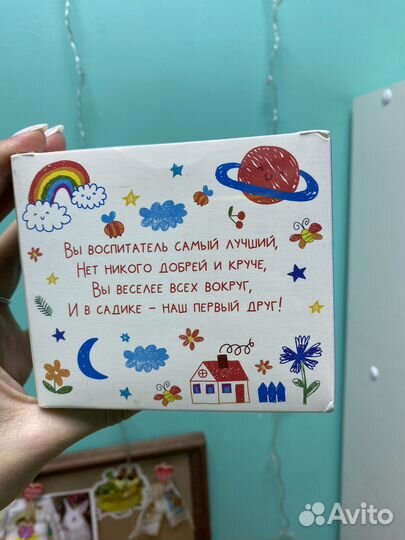 Вы воспитатель самый лучший,
Нет никого добрей и круче,
Вы веселее всех вокруг,
И в садике – наш первый друг!
Avito